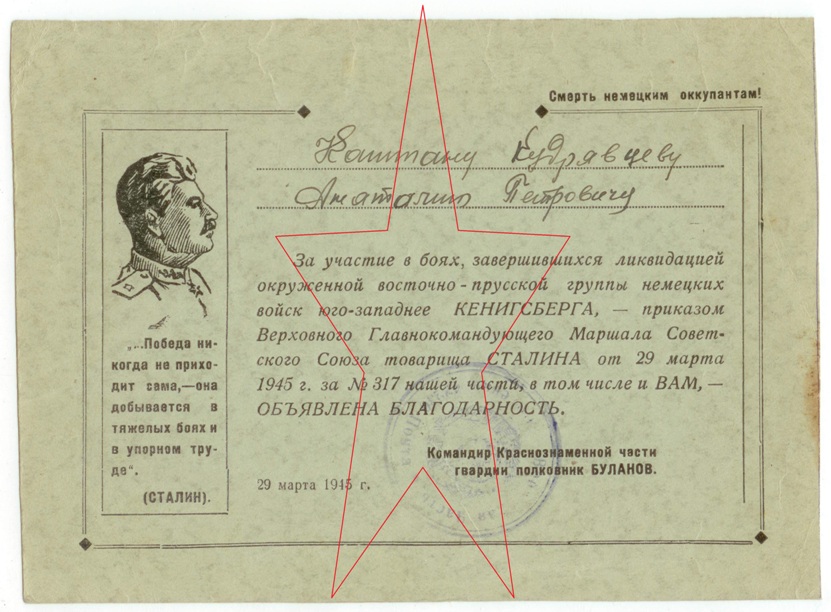 Смерть немецким оккупантам!
Каштану Кудрявцеву
Анаталию Петровичу
За участие в боях, завершившихся ликвидацией
окруженной восточно-прусской группы немецких
войск юго-западнее КЕНИГСБЕРГА, — приказом
Верховного Главнокомандующего Маршала Совет-
ского Союза товарища СТАЛИНА от 29 марта
1945 г. за № 317 нашей части, в том числе и ВАМ, —
ОБЪЯВЛЕНА БЛАГОДАРНОСТЬ.
Командир Краснознаменной части
гвардии полковник БУЛАНОВ.
29 марта 1945 г.
„...Победа ни-
когда не прихо-
дит сама,—она
добывается в
тяжелых боях и
в упорном тру-
де“.
(СТАЛИН).